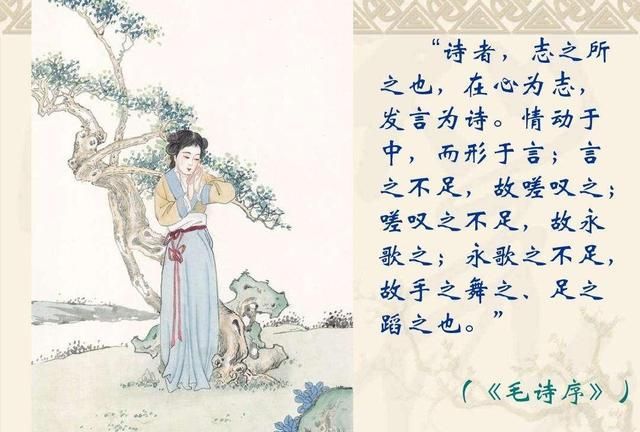 “诗者，志之所
之也，在心为志，
发言为诗。情动于
中，而形于言；言
之不足，故嗟叹之；
嗟叹之不足，故永
歌之；永歌之不足，
故手之舞之、足之
蹈之也。”
（《毛诗序》）